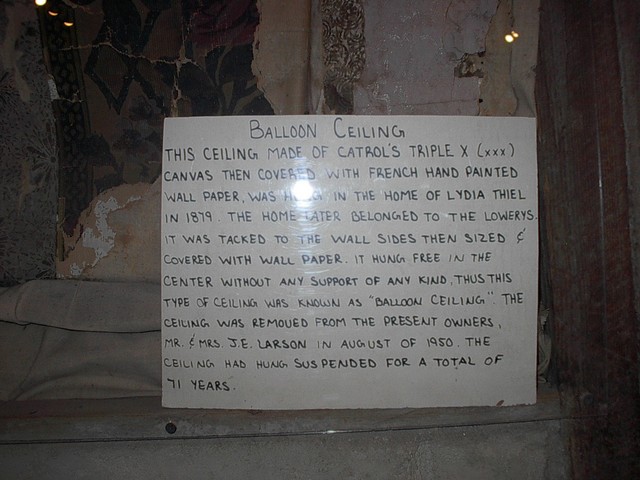 BALLOON CEILING
THIS CEILING MADE OF CATROL'S TRIPLE X (XXX)
CANVAS THEN COVERED WITH FRENCH HAND PAINTED
WALL PAPER, WAS HUNG IN THE HOME OF LYDIA THIEL
IN 1879. THE HOME LATER BELONGED TO THE LOWERYS.
IT WAS TACKED TO THE WALL SIDES THEN SIZED &
COVERED WITH WALL PAPER. IT HUNG FREE IN THE
CENTER WITHOUT ANY SUPPORT OF ANY KIND, THUS THIS
TYPE OF CEILING WAS KNOWN AS "BALLOON CEILING". THE
CEILING WAS REMOVED FROM THE PRESENT OWNERS,
MR. & MRS. J.E. LARSON IN AUGUST OF 1950. THE
CEILING HAD HUNG SUSPENDED FOR A TOTAL OF
71 YEARS.